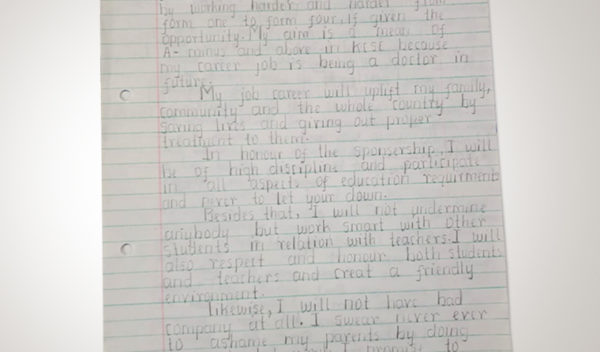 by working harder and harder from
form one to form four if given the
opportunity. My aim is a mean of
A- minus and above in KCSE because
my career job is being a doctor in
future.
My job career will uplift my family,
community and the whole country by
saving lives and giving out proper
treatment to them.
In honour of the sponsership, I will
be of high discipline and participate
in all aspects of education requirments
and never to let your down.
Besides that, I will not undermine
anybody but work smart with other
students in relation with teachers. I will
also respect and honour both students
and teachers and creat a friendly
environment.
Likewise, I will not have bad
company at all. I swear never ever
to ashame my parents by doing
I promise to